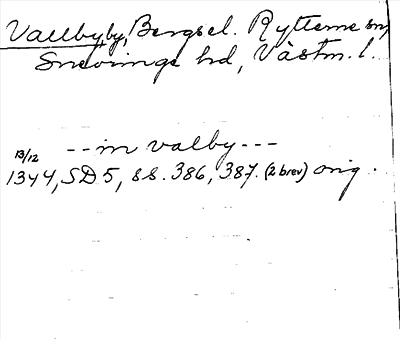 Vallby by, Bergsel. Rytterne sn,
Snevinge hd, Västm. l.
--- in valby ---
13/12
1344, SD 5, ss. 386, 387. (2 brev) orig.